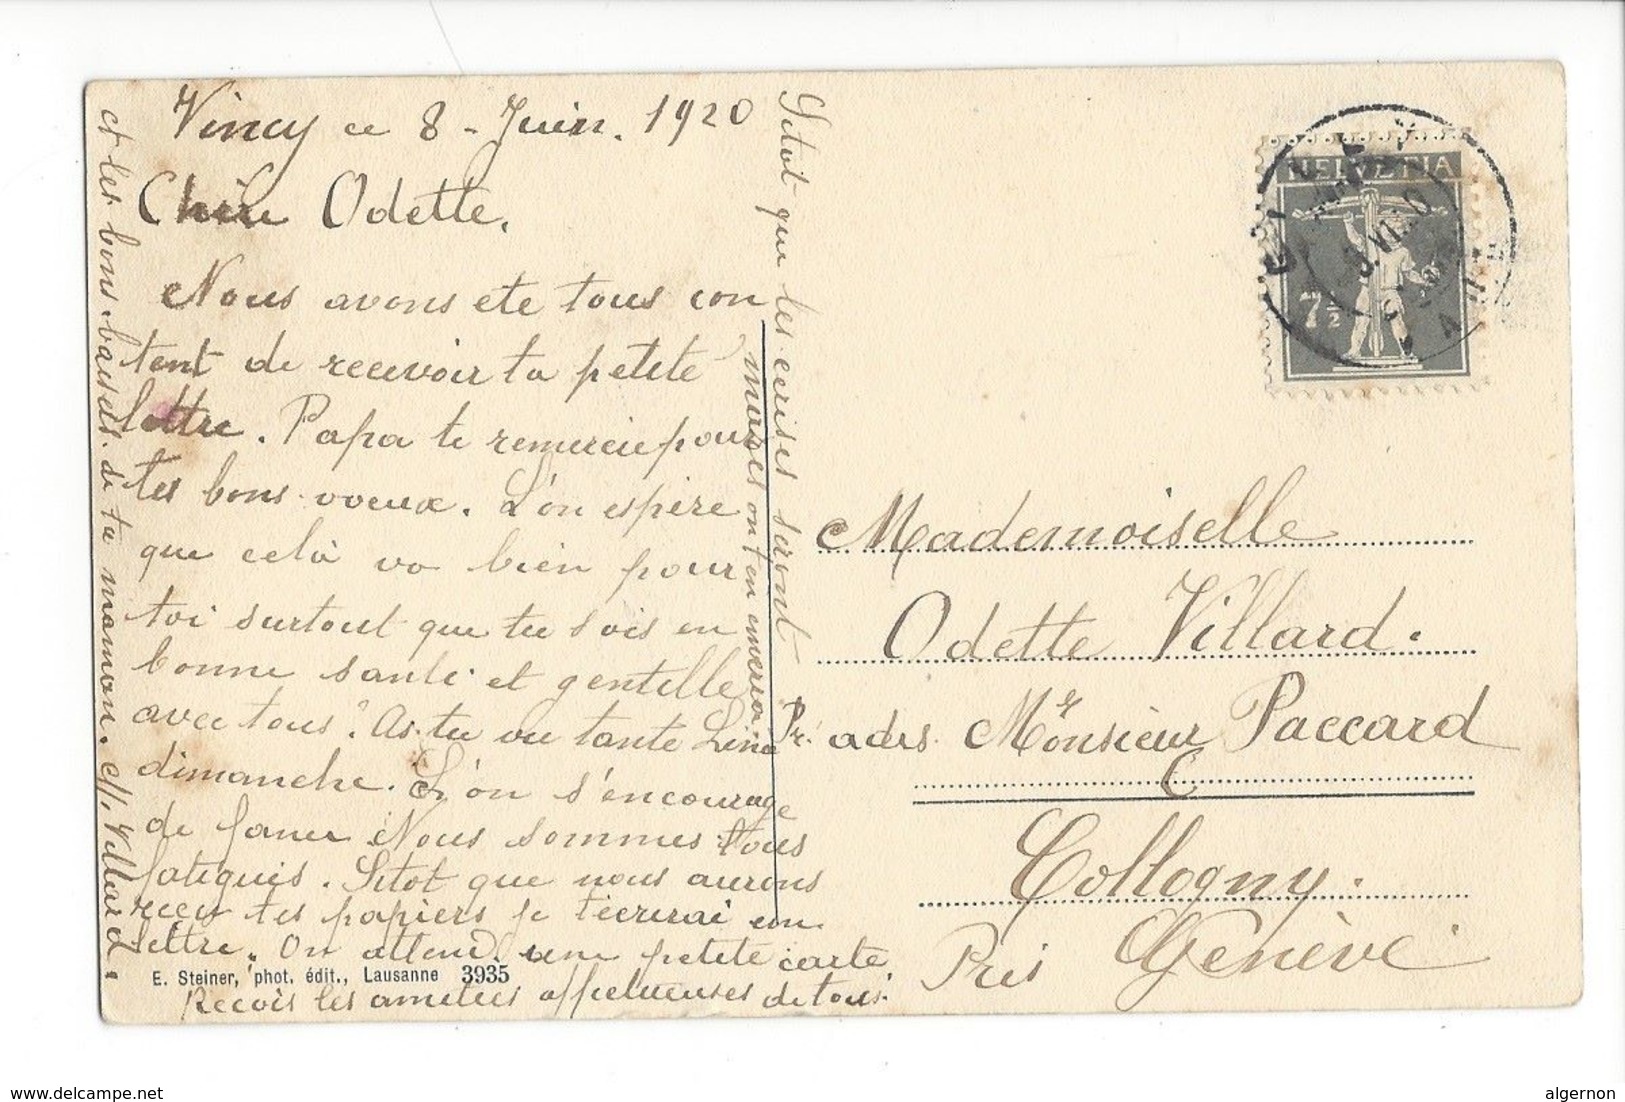 Vincy ce 8 - Juin. 1920
Chère Odette.
Nous avons ete tous con
tent de recevoir ta petite
lettre. Papa te remercie pour
tes bons voeux. L'on espère
que celà va bien pour
toi surtout que tu sois en
bonne santé et gentille
avec tous? As-tu vu tante Line
dimanche. L'on s'encourage
de faner Nous sommes tous
fatigués. Sitot que nous aurons
reçu tes papiers je t'ecrirai une
lettre. On attend une petite carte.
Recois les amitiés affectueuses de tous.
et les bons baisers de ta maman. Villard.
Sitot que les cerises seront
mures on t'en enverra
E. Steiner, phot. édit., Lausanne 3935
HELVETIA
7½
Mademoiselle
Odette Villard.
Pr. adrs. Monsieur Paccard
Collogny.
Près Genève
algernon